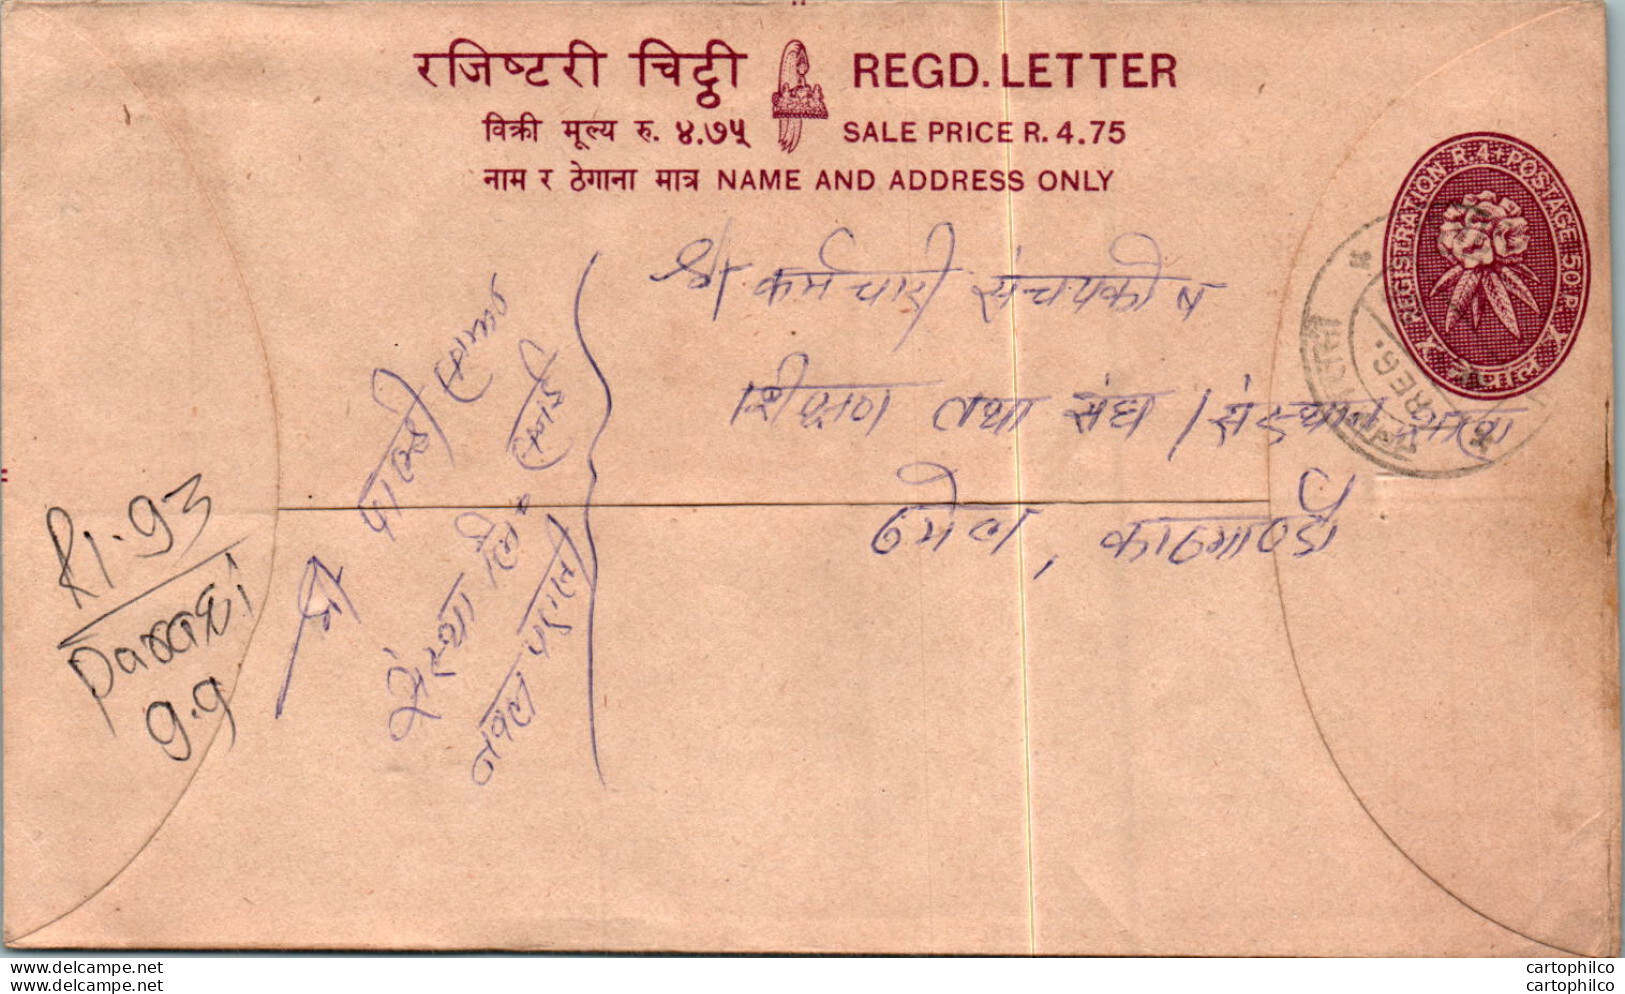 रजिष्टरी चिट्ठी REGD. LETTER
विक्री मूल्य रु. ४.७५ SALE PRICE R. 4.75
नाम र ठेगाना मात्र NAME AND ADDRESS ONLY
REGISTRATION R. 4 + POSTAGE 50 P.
नेपाल
REG.
श्री कर्मचारी संचयकोष
शिक्षण तथा संघ /
काठमाण्डौ
श्री पाल्ही
संस्था
नवल परासी
R1-93
Parasi
9.9
www.delcampe.net
www.delcampe.net
cartophilco
cartophilco